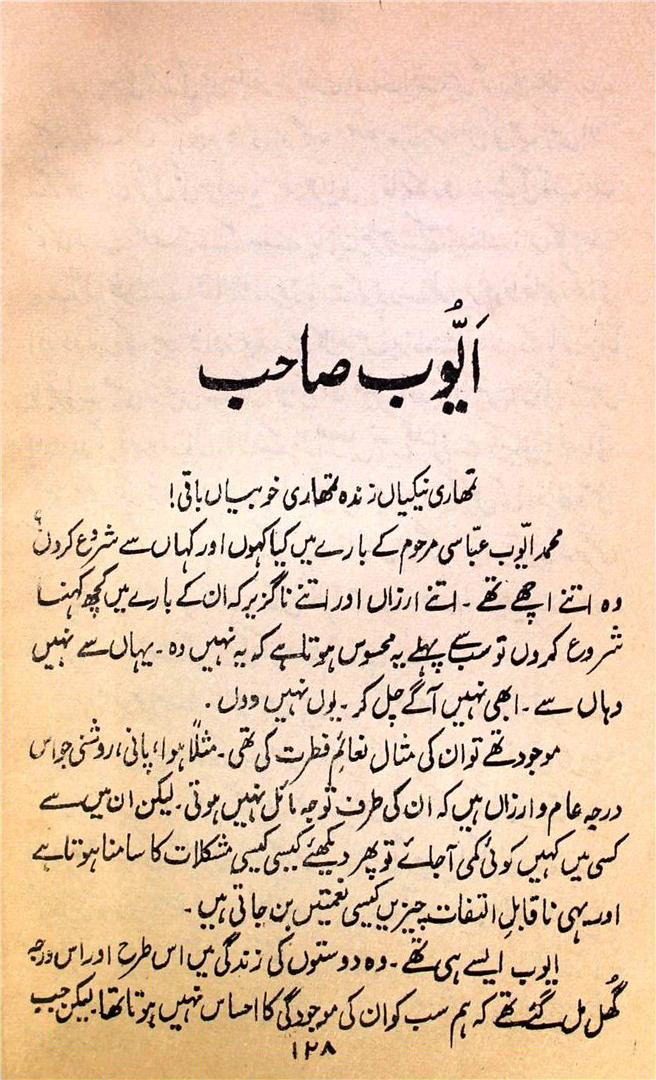 اَیُّوب صاحب
تمھاری نیکیاں زندہ تمھاری خوبیاں باقی!
محمد ایّوب عبّاسی مرحوم کے بارے میں کیا کہوں اور کہاں سے شروع کروں؟
وہ اتنے اچھے تھے۔ اتنے ارزاں اور اتنے ناگزیر کہ ان کے بارے میں کچھ کہنا
شروع کروں تو سب سے پہلے یہ محسوس ہوتا ہے کہ یہ نہیں وہ۔ یہاں سے نہیں
وہاں سے۔ ابھی نہیں آگے چل کر۔ یوں نہیں ووں۔
موجود تھے تو ان کی مثال نعائمِ فطرت کی تھی۔ مثلاً ہوا، پانی، روشنی جو اس
درجہ عام و ارزاں ہیں کہ ان کی طرف توجہ مائل نہیں ہوتی۔ لیکن ان میں سے
کسی میں کہیں کوئی کمی آجائے تو پھر دیکھئے کیسی کیسی مشکلات کا سامنا ہوتا ہے
اور یہی ناقابلِ التفات چیزیں کیسی نعمتیں بن جاتی ہیں۔
ایوب ایسے ہی تھے۔ وہ دوستوں کی زندگی میں اس طرح اور اس درجہ
گُھل مل گئے تھے کہ ہم سب کو ان کی موجودگی کا احساس نہیں ہوتا تھا لیکن جب
۱۲۸